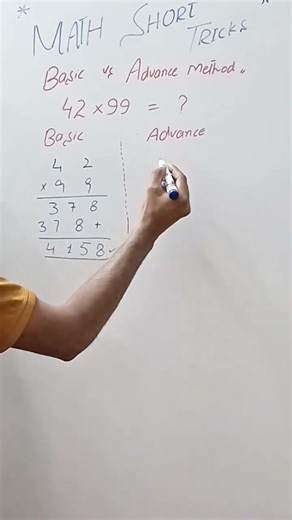 * MATH SHORT TRICKS *
Basic vs Advance Method..
42 × 99 = ?
Basic
Advance
4 2
× 9 9
3 7 8
3 7 8 +
4 1 5 8 ✓